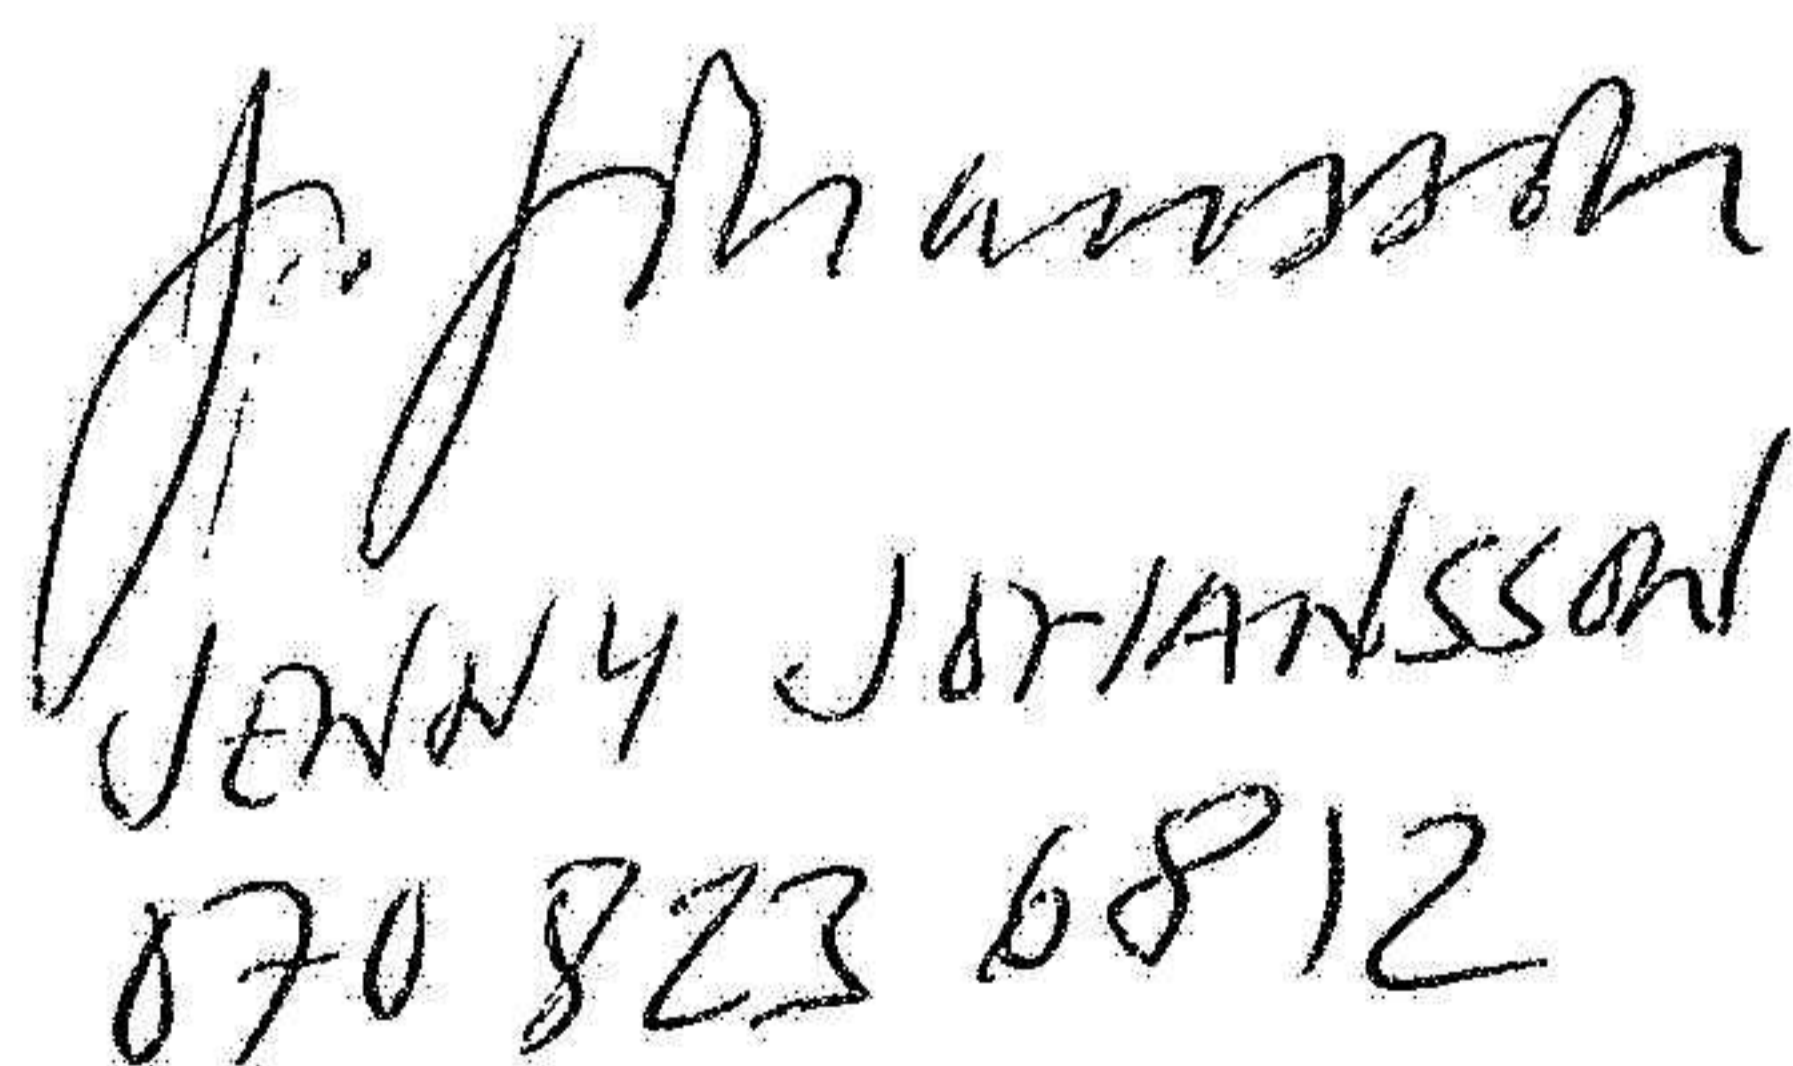 J. Johansson
JENNY JOHANSSON
070 823 6812